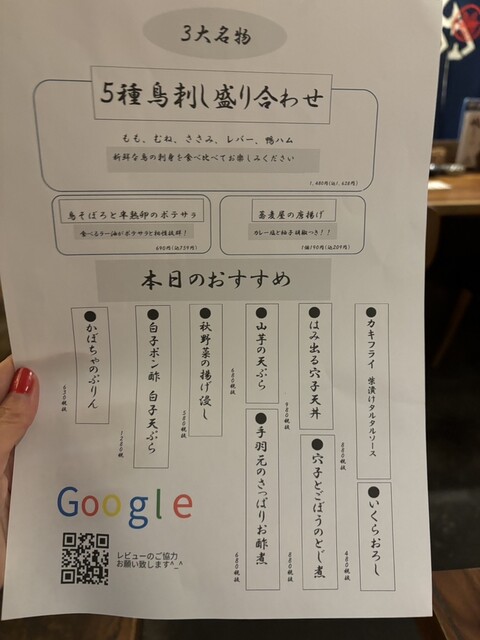 3大名物
5種鳥刺し盛り合わせ
もも、むね、ささみ、レバー、鴨ハム
新鮮な鳥の刺身を食べ比べてお楽しみください
1,480円(込1,628円)
鳥そぼろと半熟卵のポテサラ
食べるラー油がポテサラと相性抜群！
690円(込759円)
蕎麦屋の唐揚げ
カレー塩と柚子胡椒つき！！
1個190円(込209円)
本日のおすすめ
●カキフライ 柴漬けタルタルソース
880税抜
●いくらおろし
480税抜
●はみ出る穴子天丼
980税抜
●穴子とごぼうのとじ煮
880税抜
●山芋の天ぷら
680税抜
●手羽元のさっぱりお酢煮
680税抜
●秋野菜の揚げ浸し
580税抜
●白子ポン酢 白子天ぷら
1280税抜
●かぼちゃのぷりん
630税抜
Google
レビューのご協力
お願い致します^_^